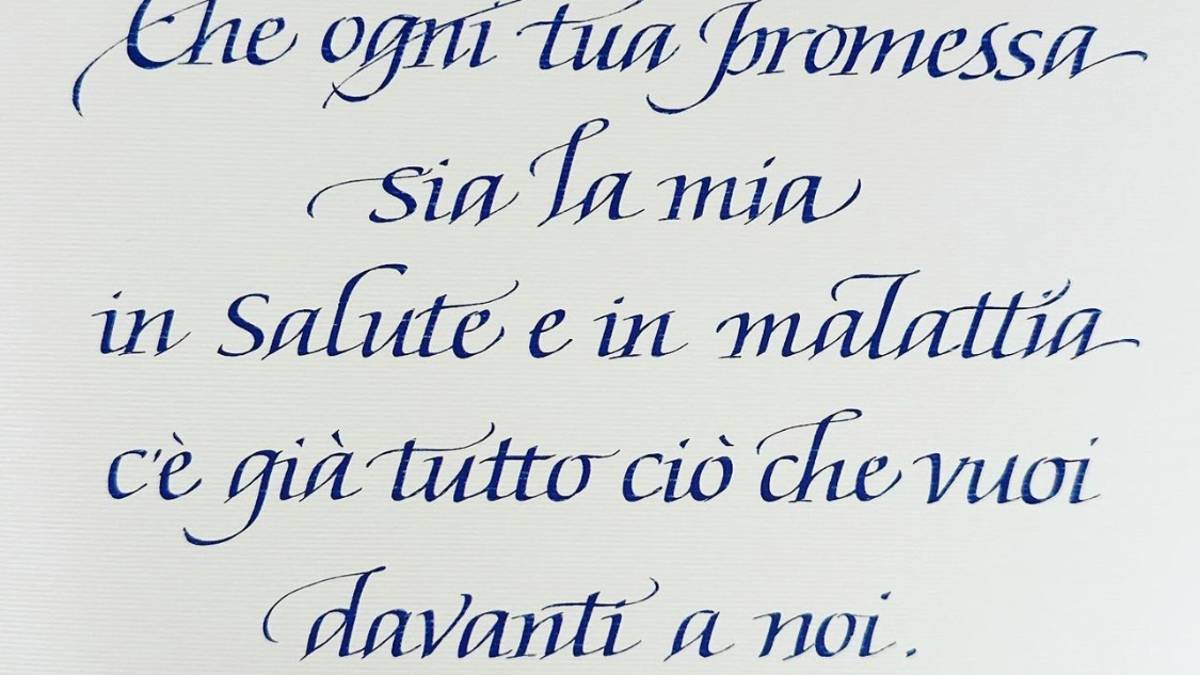 Che ogni tua promessa
sia la mia
in Salute e in malattia
c'è già tutto ciò che vuoi
davanti a noi.